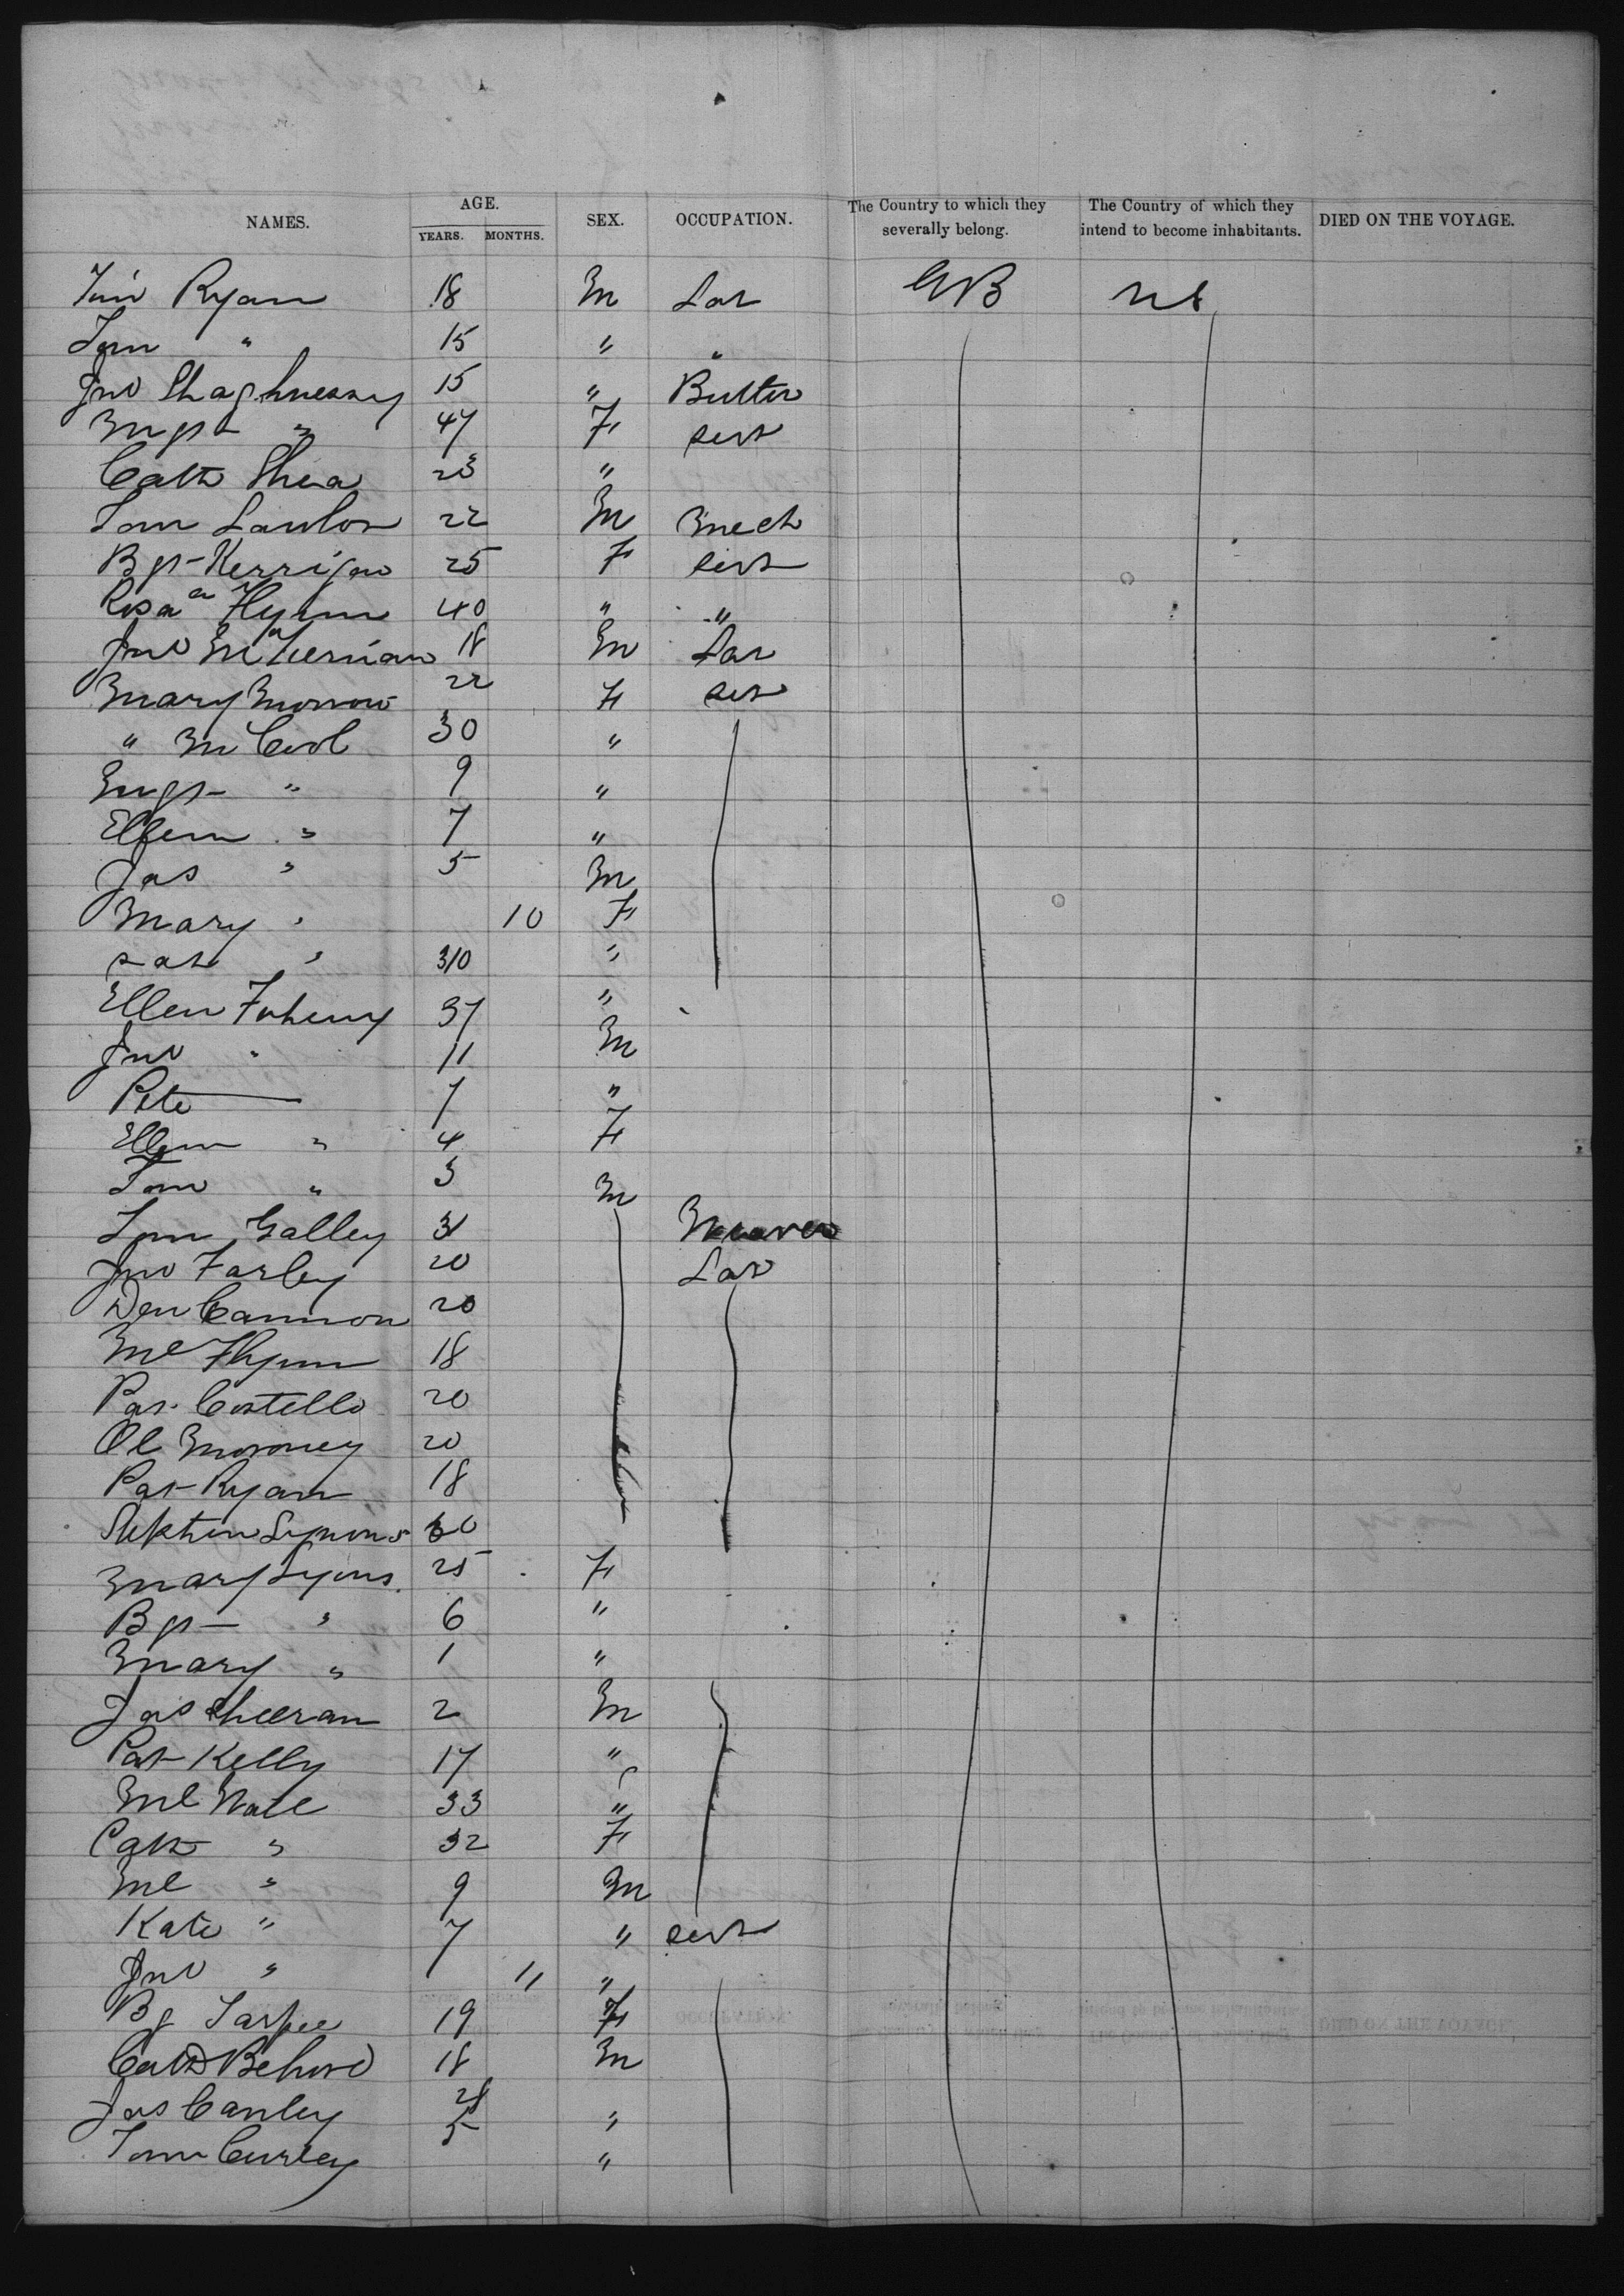 NAMES. AGE. YEARS. MONTHS. SEX. OCCUPATION. The Country to which they severally belong. The Country of which they intend to become inhabitants. DIED ON THE VOYAGE.
Ryan 18 M Lar GB US
Tom " 15 " "
Jno Shaghnessy 15 " Butler
Mgt " 47 F sert
Cath Shea 23 "
Tom Lawlor 22 M Mech
Bgt Kerrigan 25 F sert
Rosa Flynn 40 " "
Jno McKernan 18 M Lar
Mary Morrow 22 F ser
" McCool 30 "
Mgt " 9 "
Ellen " 7 "
Jas " 5 M
Mary " 10 F
" 310 "
Ellen Faheny 37 "
Jno " 11 M
Pete 7 "
Ellen " 4 F
Tom " 3 M
Tom Galley 31 Weaver
Jno Farley 20 Lar
Den Cannon 20
Ml Flynn 18
Pat Costello 20
Moroney 20
Pat Ryan 18
Symons
Mary Lyons 25 F
Bgt " 6 "
Mary " 1 "
Jas Sheeran 2 M
Pat Kelly 17 "
Ml Wall 33 "
Cath " 32 F
Ml " 9 M
Kate " 7 " sert
Jno " 11 "
Bg Tarpee 19 F
18 M
Jas Canley 28 "
Tom Curley 5 "